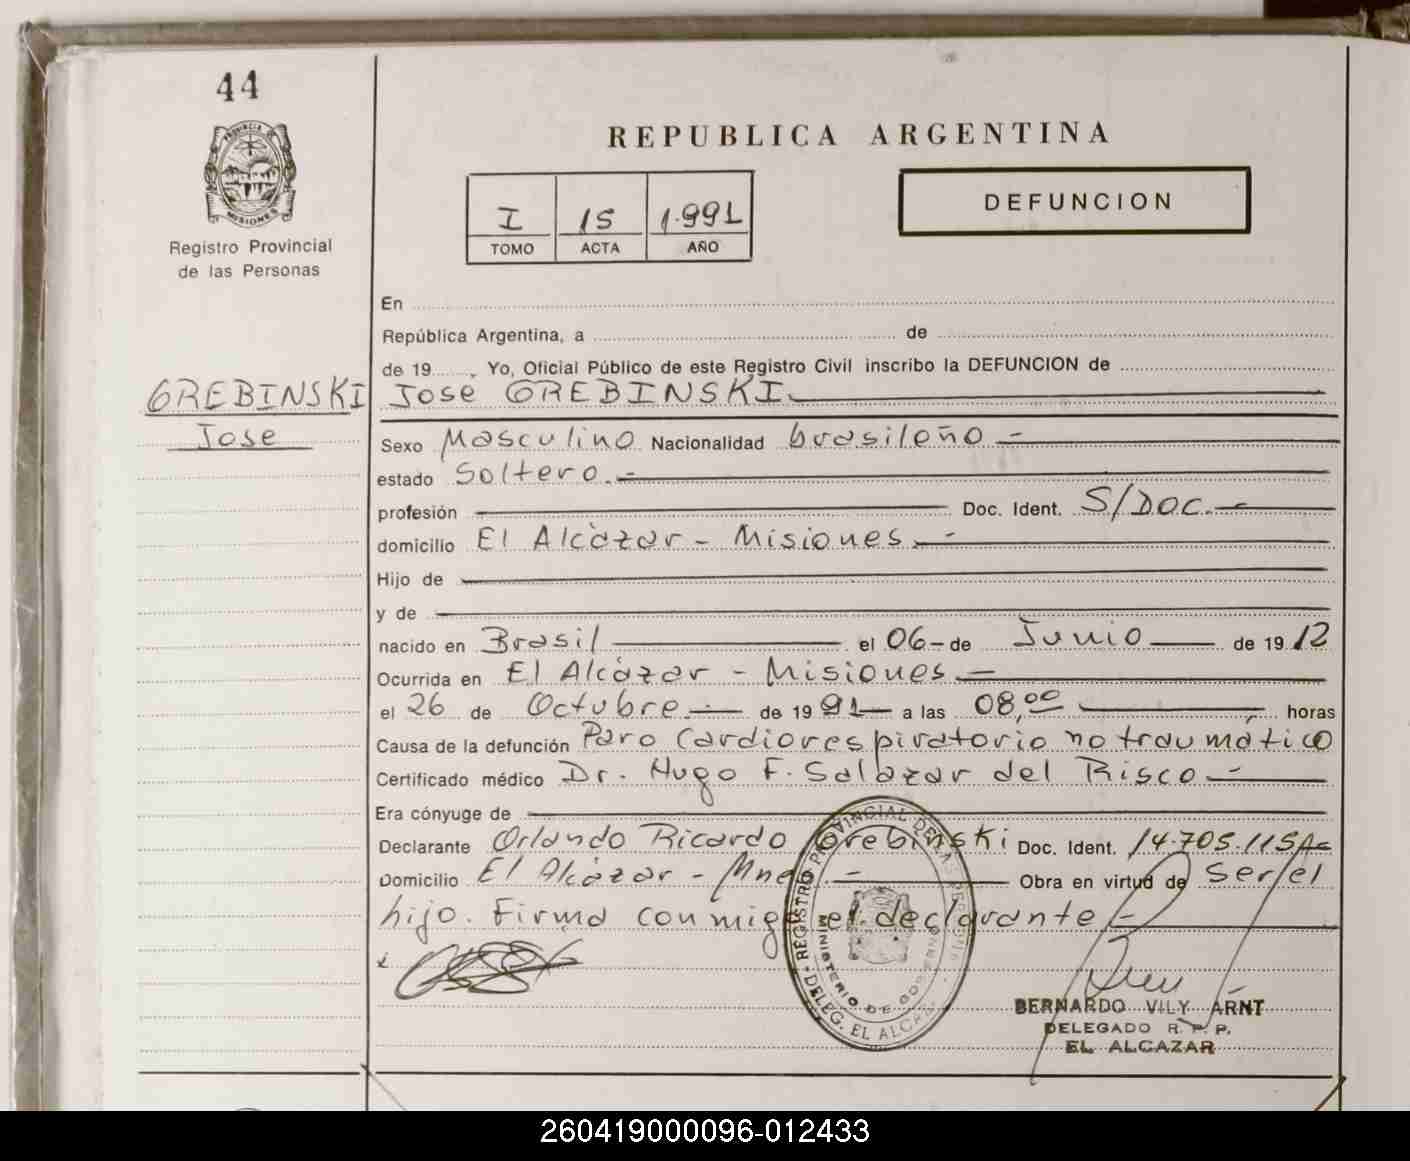 44
PROVINCIA DE
MISIONES
Registro Provincial
de las Personas
REPUBLICA ARGENTINA
I 15 1.991
TOMO ACTA AÑO
DEFUNCION
En
República Argentina, a de
de 19 , Yo, Oficial Público de este Registro Civil inscribo la DEFUNCION de
GREBINSKI
Jose
Jose GREBINSKI.
Sexo Masculino Nacionalidad brasileño -
estado Soltero.-
profesión Doc. Ident. S/DOC.-
domicilio El Alcàzar - Misiones.-
Hijo de
y de
nacido en Brasil el 06-de Junio de 1912
Ocurrida en El Alcàzar - Misiones.-
el 26 de Octubre.- de 1991 a las 08,00 horas
Causa de la defunción Paro Cardiorespiratorio no traumático
Certificado médico Dr. Hugo F. Salazar del Risco.-
Era cónyuge de
Declarante Orlando Ricardo Grebinski Doc. Ident. 14.705.115
Domicilio El Alcàzar - Mnes.- Obra en virtud de ser el
hijo. Firma conmigo el declarante.-
REGISTRO PROVINCIAL DE LAS PERSONAS
MINISTERIO DE GOBIERNO
DELEG. EL ALCAZAR
BERNARDO VILY ARNT
DELEGADO R. P. P.
EL ALCAZAR
260419000096-012433